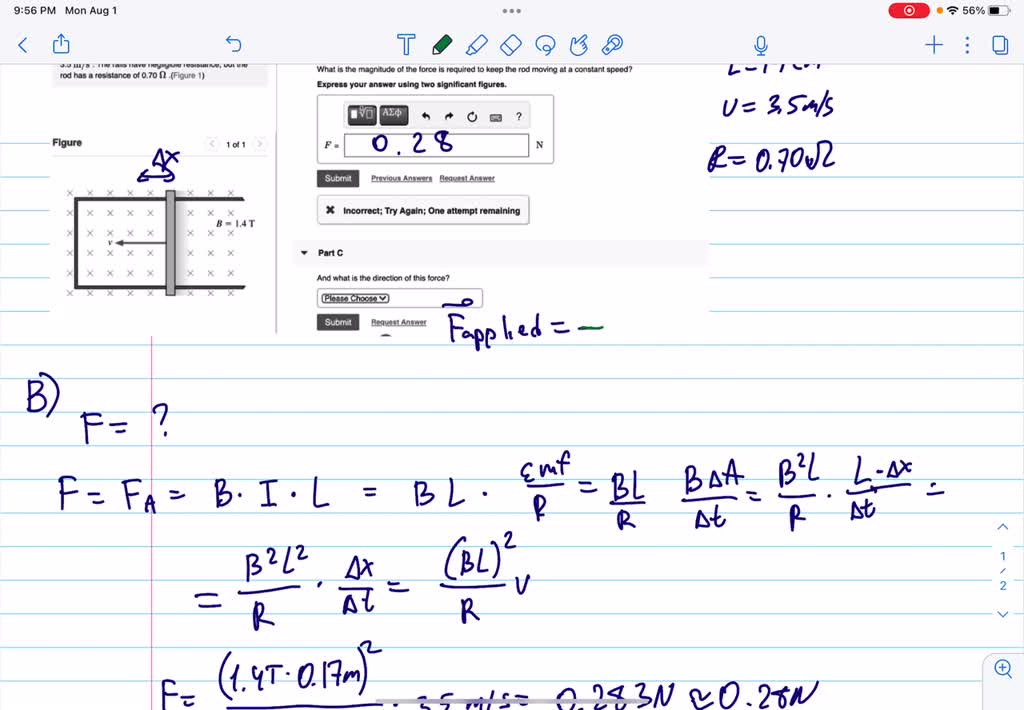 9:56 PM Mon Aug 1
56%
rod has a resistance of 0.70 Ω .(Figure 1)
What is the magnitude of the force is required to keep the rod moving at a constant speed?
Express your answer using two significant figures.
ΑΣΦ
?
F = 0.28 N
Submit Previous Answers Request Answer
✖ Incorrect; Try Again; One attempt remaining
Part C
And what is the direction of this force?
Please Choose
Submit Request Answer
Figure
1 of 1
Δx
B = 1.4 T
v
v = 3.5 m/s
R = 0.70 Ω
Fapplied = –
B)
F = ?
F = FA = B · I · L = BL · εmf/R = BL/R BΔA/Δt = B²L/R · L·Δx/Δt =
= B²L²/R · Δx/Δt = (BL)²/R v
F = (1.4T · 0.17m)² · 3.5 m/s = 0.283N ≈ 0.28N
1
/
2